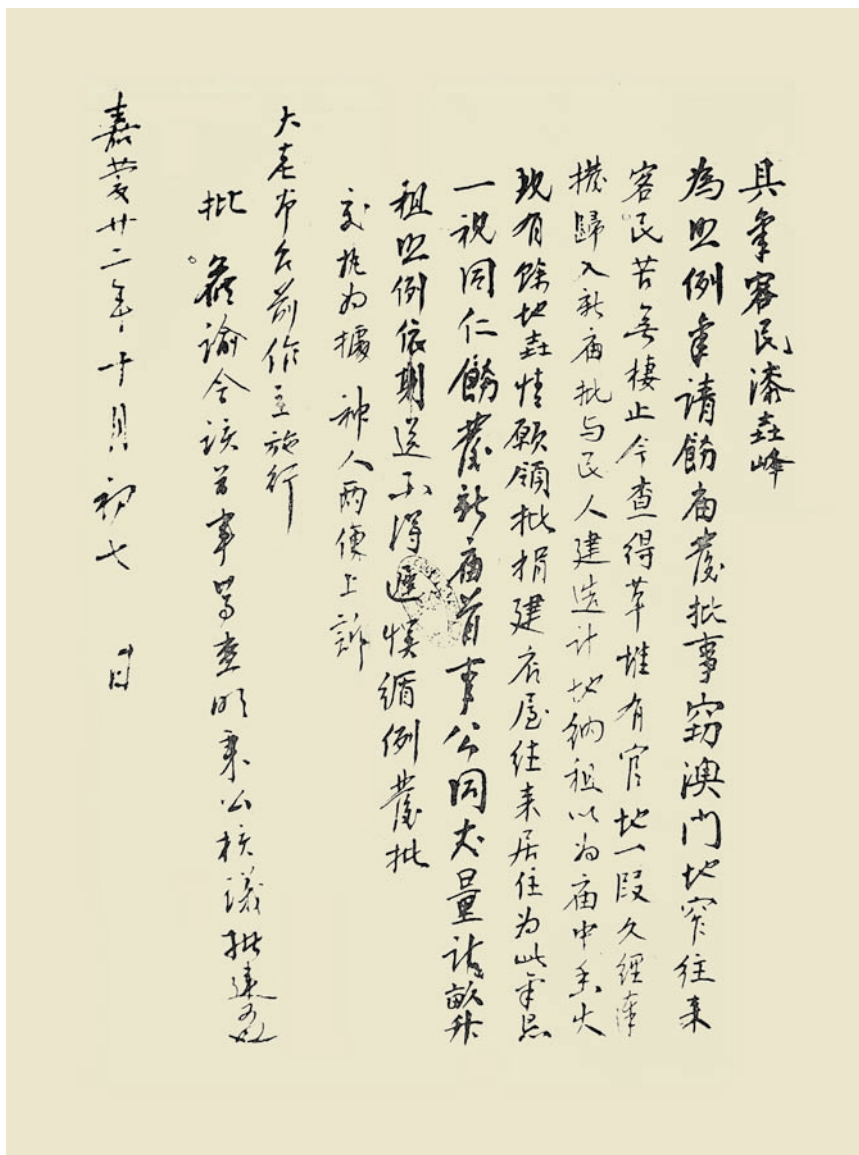 具稟客民漆垚峰
為照例稟請飭廟發批事竊澳門地窄往來
客民苦無棲止今查得草堆有官地一段久經奉
撥歸入新庙批与民人建造计地纳租以为庙中香火
现有餘地垚情愿領批捐建店屋往来居住为此稟恳
一視同仁飭發新庙首事公同丈量計畝升
租照例依期送不得遲悮循例發批
交执为據神人两便上訴
大老爷台前作主施行
批 候諭令该首事等查明秉公核議批建可也
嘉慶廿二年十月初七 日